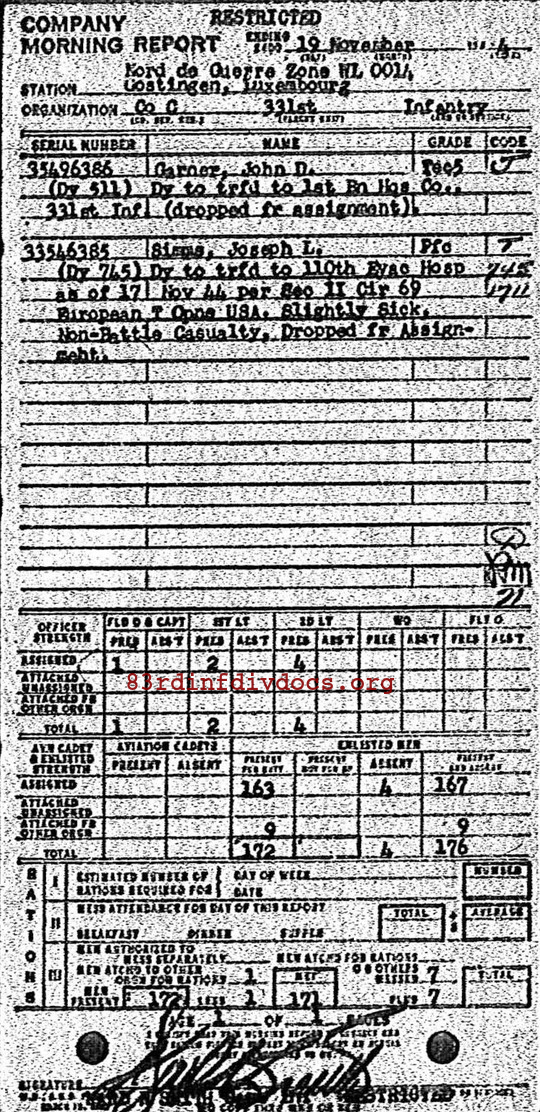 RESTRICTED
COMPANY
MORNING REPORT ENDING 19 November 194 4
Nord de Guerre Zone WL 0014
STATION Oostingen, Luxembourg
ORGANIZATION Co C 331st Infantry
SERIAL NUMBER NAME GRADE CODE
35496386 Garner, John D. Tec5 J
(Dy 511) Dy to trfd to 1st Bn Hqs Co.,
331st Inf. (dropped fr assignment).
33546385 Simms, Joseph L. Pfc T
(Dy 745) Dy to trfd to 110th Evac Hosp 745
as of 17 Nov 44 per Sec II Cir 69 1711
European T Opns USA. Slightly Sick,
Non-Battle Casualty, Dropped fr Assign-
ment.
21
OFFICER STRENGTH FLD O & CAPT 1ST LT 2D LT WO FLT O
PRES ABS'T PRES ABS'T PRES ABS'T PRES ABS'T PRES ABS'T
ASSIGNED 1 2 4
ATTACHED UNASSIGNED
83rdinfdivdocs.org
ATTACHED FR OTHER ORGN
TOTAL 1 2 4
AVN CADET & ENLISTED STRENGTH AVIATION CADETS ENLISTED MEN
PRESENT ABSENT PRESENT FOR DUTY PRESENT NOT FOR DY ABSENT PRESENT AND ABSENT
ASSIGNED 163 4 167
ATTACHED UNASSIGNED
ATTACHED FR OTHER ORGN 9 9
TOTAL 172 4 176
RATIONS
I ESTIMATED NUMBER OF RATIONS REQUIRED FOR DAY OF WEEK DATE NUMBER
II MESS ATTENDANCE FOR DAY OF THIS REPORT TOTAL ÷ 3 AVERAGE
BREAKFAST DINNER SUPPER
III MEN AUTHORIZED TO MESS SEPARATELY MEN ATCHD FOR RATIONS
MEN ATCHD TO OTHER ORGN FOR RATIONS 1 NET OTHERS MESSED 7 TOTAL
MEN PRESENT 172 LESS 1 171 PLUS 7
PAGE 1 OF 1 PAGES
SIGNATURE
RESTRICTED